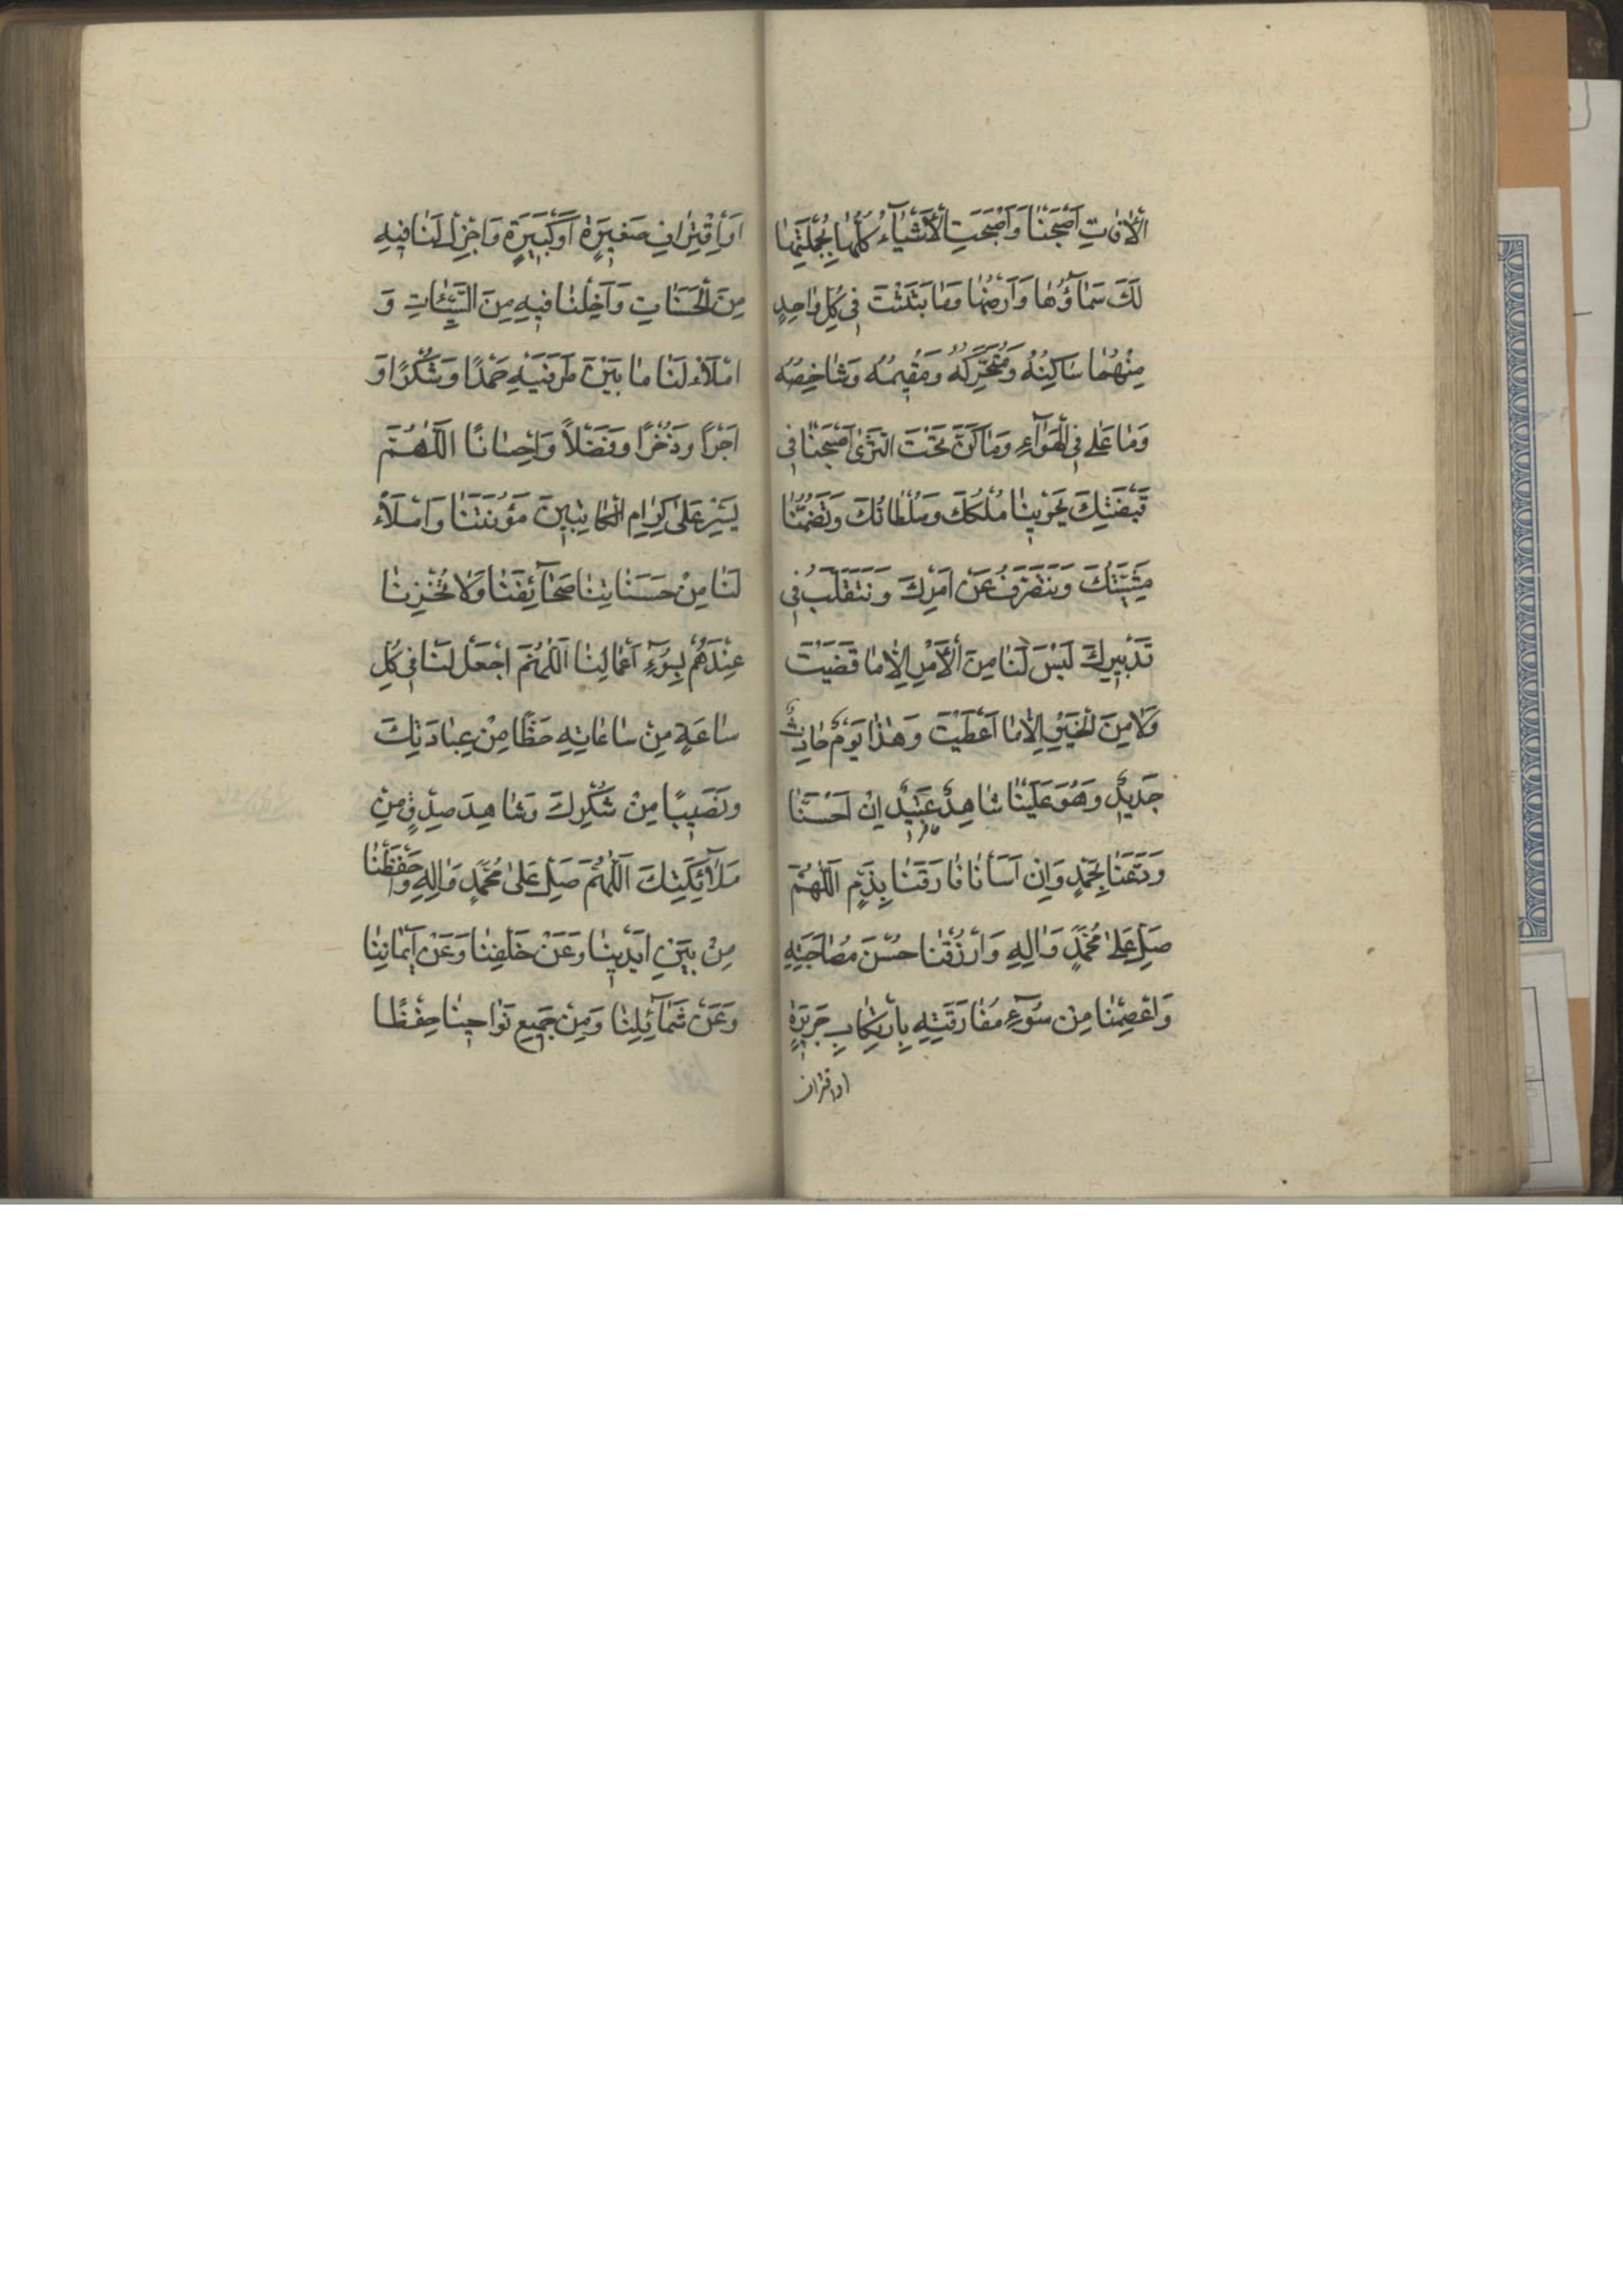 الْاٰفاتِ اَصْبَحْنا وَاَصْبَحَتِ الْاَشْيآءُ كُلُّها بِجُمْلَتِها
لَكَ سَمآؤُها وَاَرْضُها وَما بَثَثْتَ فى كُلِّ واحِدٍ
مِنْهُما ساكِنُهُ وَمُتَحَرِّكُهُ وَمُقيمُهُ وَشاخِصُهُ
وَما عَلى فِى الْهَوآءِ وَما كَنَّ تَحْتَ الثَّرىٰ اَصْبَحْنا فى
قَبْضَتِكَ يَحْوينا مُلْكُكَ وَسُلْطانُكَ وَتَضُمُّنا
مَشِيَّتُكَ وَنَتَصَرَّفُ عَنْ اَمْرِكَ وَنَتَقَلَّبُ فى
تَدْبيرِكَ لَيْسَ لَنا مِنَ الْاَمْرِ اِلّا ما قَضَيْتَ
وَلا مِنَ الْخَيْرِ اِلّا ما اَعْطَيْتَ وَهٰذا يَوْمٌ حادِثٌ
جَديدٌ وَهُوَ عَلَيْنا شاهِدٌ عَتيدٌ اِنْ اَحْسَنّا
وَدَّعَنا بِحَمْدٍ وَاِنْ اَسَأْنا فارَقَنا بِذَمٍّ اَللّٰهُمَّ
صَلِّ عَلىٰ مُحَمَّدٍ وَاٰلِهِ وَارْزُقْنا حُسْنَ مُصاحَبَتِهِ
وَاعْصِمْنا مِنْ سُوٓءِ مُفارَقَتِهِ بِارْتِكابِ جَريرَةٍ
او اقتراف
اَوِ اقْتِرافِ صَغيرَةٍ اَوْ كَبيرَةٍ وَاَجْزِلْ لَنا فيهِ
مِنَ الْحَسَناتِ وَاَخْلِنا فيهِ مِنَ السَّيِّئاتِ وَ
امْلَأْ لَنا ما بَيْنَ طَرَفَيْهِ حَمْدًا وَشُكْرًا وَ
اَجْرًا وَذُخْرًا وَفَضْلاً وَاِحْسانًا اَللّٰهُمَّ
يَسِّرْ عَلَى الْكِرامِ الْكاتِبينَ مَؤُنَتَنا وَامْلَأْ
لَنا مِنْ حَسَناتِنا صَحآئِفَنا وَلا تُخْزِنا
عِنْدَهُمْ بِسُوٓءِ اَعْمالِنا اَللّٰهُمَّ اجْعَلْ لَنا فى كُلِّ
ساعَةٍ مِنْ ساعاتِهِ حَظًّا مِنْ عِبادَتِكَ
وَنَصيبًا مِنْ شُكْرِكَ وَشاهِدَ صِدْقٍ مِنْ
مَلآئِكَتِكَ اَللّٰهُمَّ صَلِّ عَلىٰ مُحَمَّدٍ وَاٰلِهِ وَاحْفَظْنا
مِنْ بَيْنِ اَيْدينا وَعَنْ خَلْفِنا وَعَنْ اَيْمانِنا
وَعَنْ شَمآئِلِنا وَمِنْ جَميعِ نَواحينا حِفْظًا